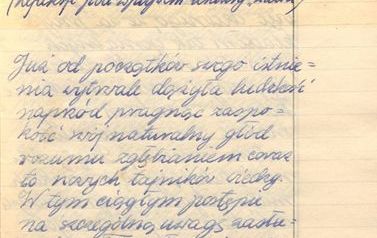 (refleksje pod wpływem lektury "
Już od początków swego istnie=
nia wytrwale dążyła ludzkość
naprzód pragnąc zaspo=
koić swój naturalny głód
rozumu zgłębianiem coraz
to nowych tajników wiedzy.
W tym ciągłym postępie
na szczególną uwagę zasłu=